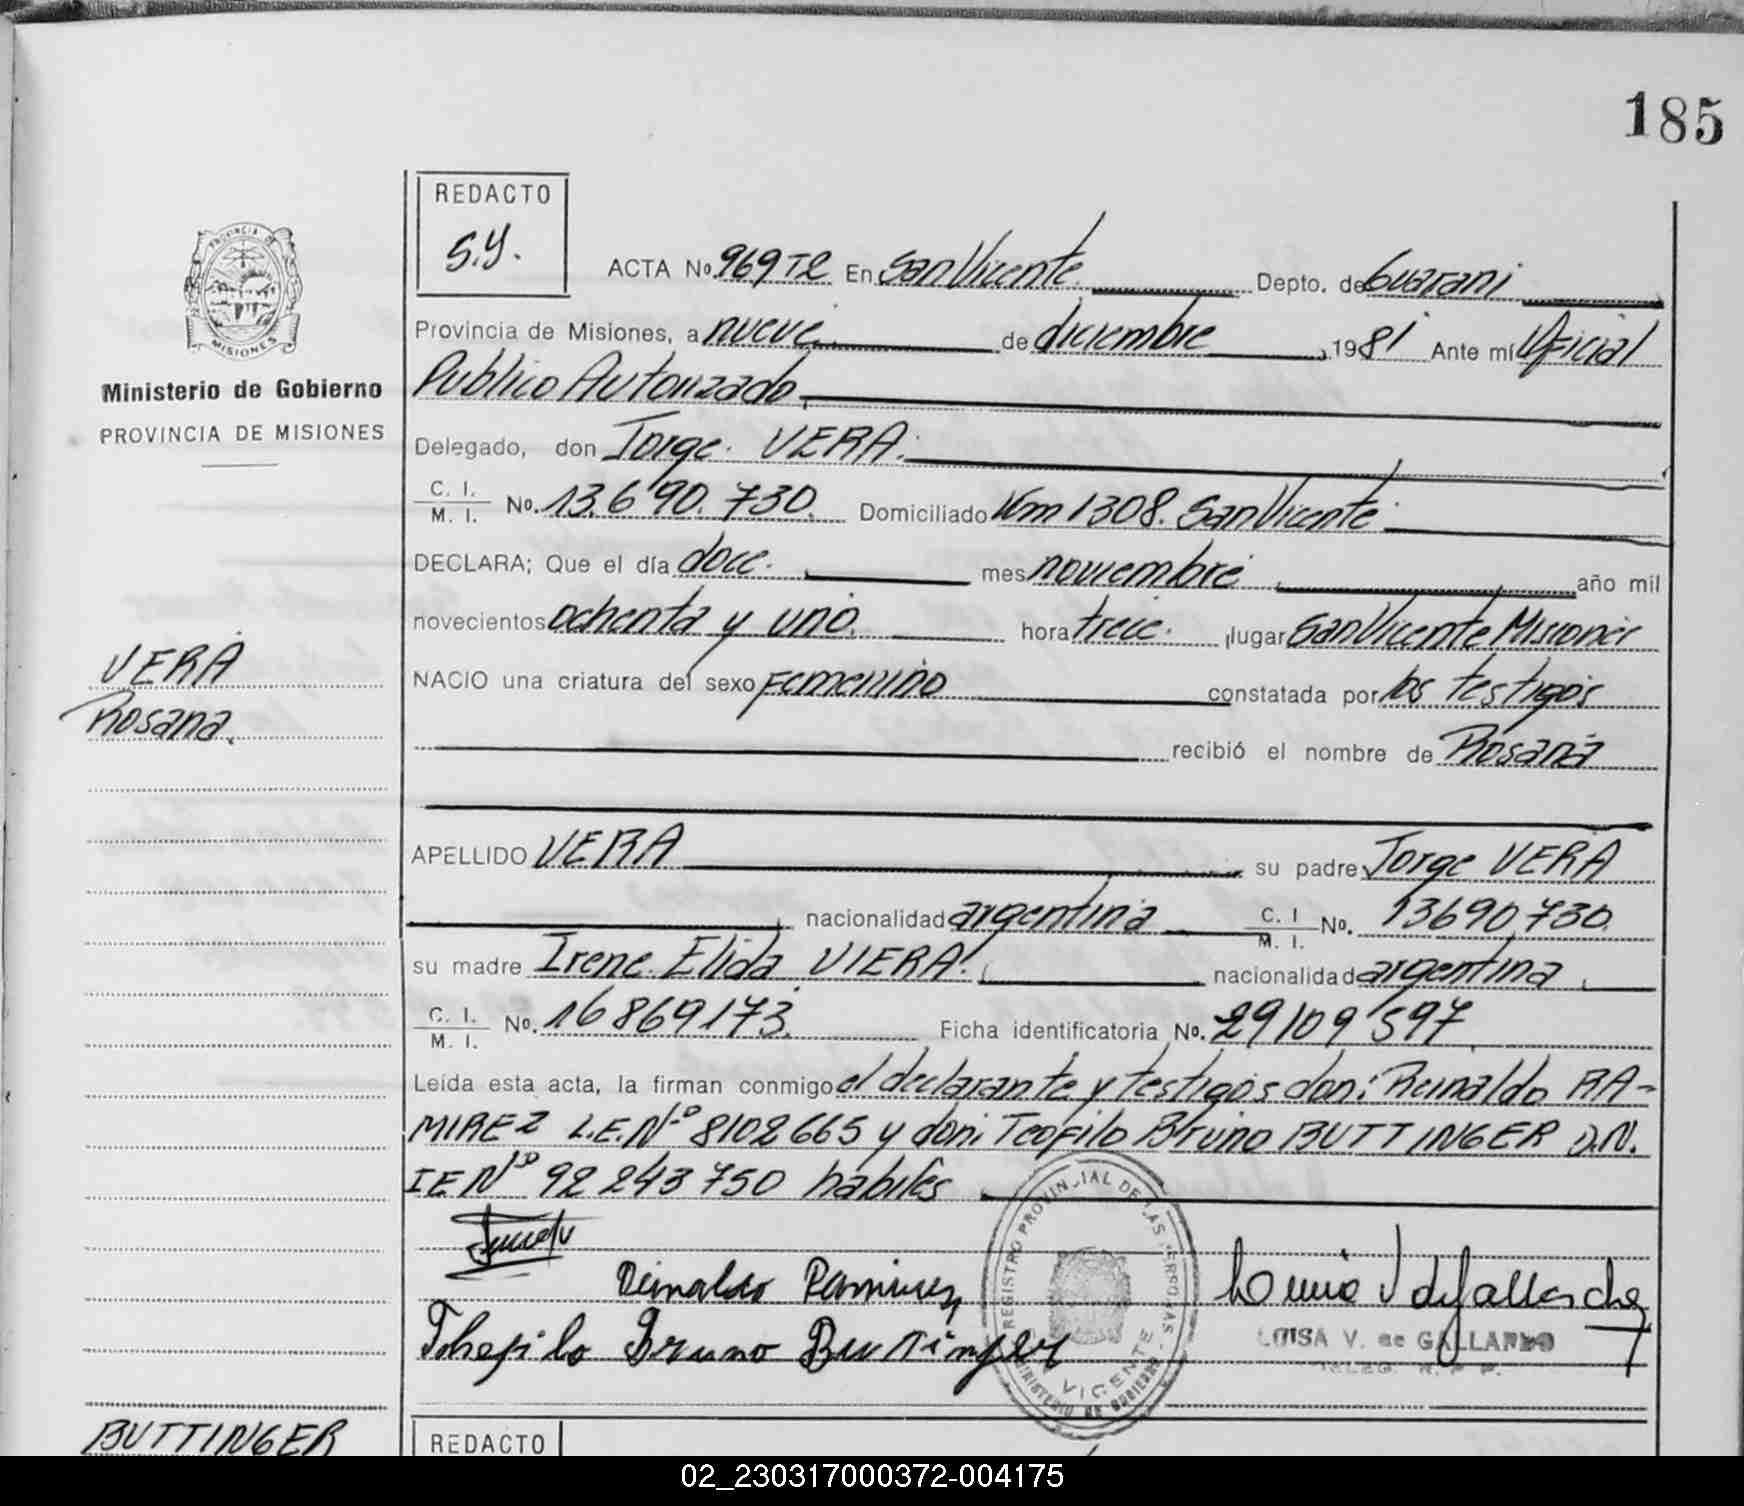 185
REDACTO
S.Y.
PROVINCIA DE
MISIONES
Ministerio de Gobierno
PROVINCIA DE MISIONES
ACTA No. 969 T2 En San Vicente. Depto. de Guarani
Provincia de Misiones, a nueve de diciembre 1981 Ante mí Oficial
Publico Autorizado
Delegado, don Jorge VERA.
C. I. / M. I. No. 13.690.730. Domiciliado Km 1308. San Vicente
DECLARA; Que el día doce. mes noviembre año mil
novecientos ochenta y uno. hora trece. lugar San Vicente Misiones
VERA
Rosana.
NACIO una criatura del sexo femenino constatada por los testigos
recibió el nombre de Rosana
APELLIDO VERA su padre Jorge VERA
nacionalidad argentina C. I / M. I. No. 13690730.
su madre Irene Elida VIERA. nacionalidad argentina
C. I. / M. I. No. 16869173. Ficha identificatoria No. 29109597
Leída esta acta, la firman conmigo el declarante y testigos don: Reinaldo RA-
MIREZ L.E.Nº 8102665 y don: Teofilo Bruno BUTTINGER D.N.
IE Nº 92243750 habiles
Reinaldo Ramirez
Bruno Buttinger
REGISTRO PROVINCIAL DE LAS PERSONAS
VICENTE
MINISTERIO DE GOBIERNO
LUISA V. de GALLARDO
DELEG. R. P. P.
BUTTINGER
REDACTO
02_230317000372-004175